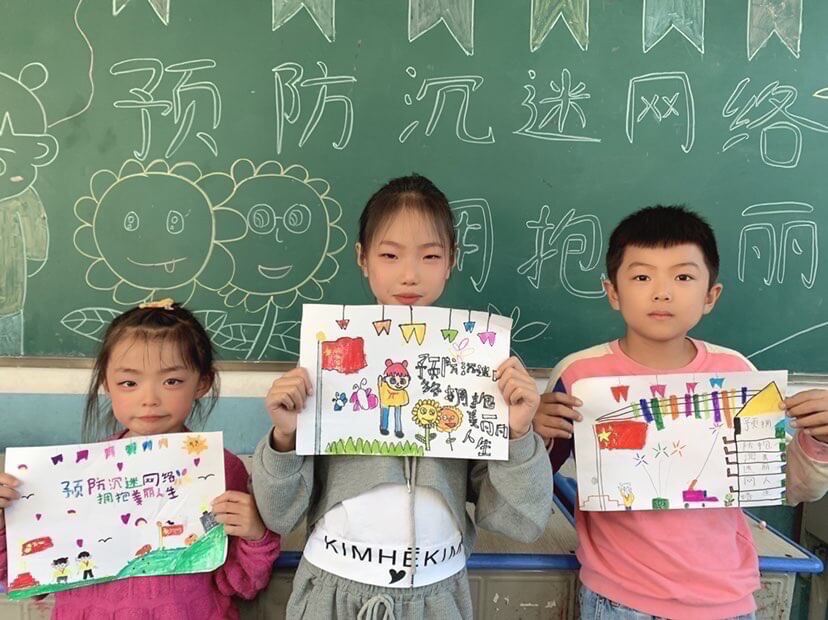 预防沉迷网络
拥抱丽
预防沉迷网络
拥抱美丽人生
预防沉迷网
络拥抱
美丽
人生
KIMHĒKIM
预拥
防抱
沉美
迷丽
网人
络生